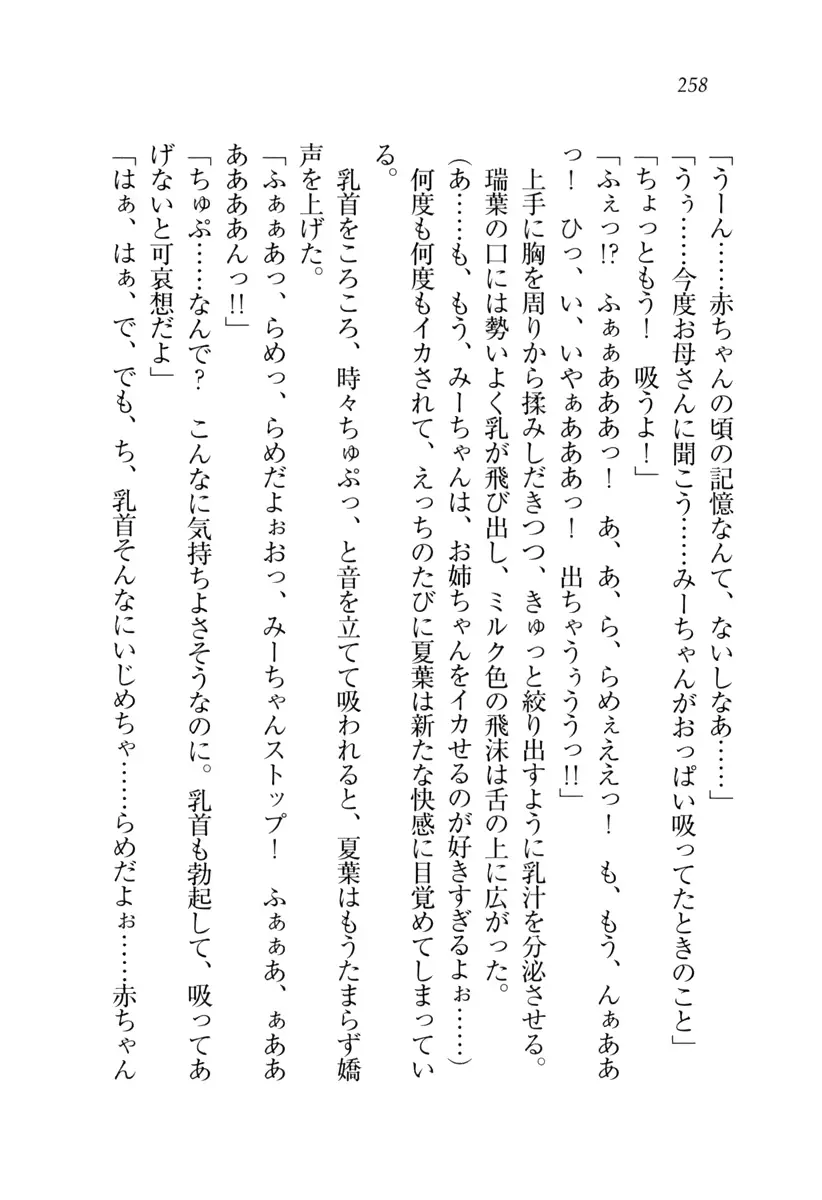 258
「うーん……赤ちゃんの頃の記憶なんて、ないしなあ……」
「うぅ……今度お母さんに聞こう……みーちゃんがおっぱい吸ってたときのこと」
「ちょっともう！　吸うよ！」
「ふぇっ!?　ふぁぁあああっ！　あ、あ、ら、らめぇええっ！　も、もう、んぁああ
っ！　ひっ、い、いやぁあああっ！　出ちゃうぅううっ!!」
　上手に胸を周りから揉みしだきつつ、きゅっと絞り出すように乳汁を分泌させる。
　瑞葉の口には勢いよく乳が飛び出し、ミルク色の飛沫は舌の上に広がった。
（あ……も、もう、みーちゃんは、お姉ちゃんをイカせるのが好きすぎるよぉ……）
　何度も何度もイカされて、えっちのたびに夏葉は新たな快感に目覚めてしまってい
る。
　乳首をころころ、時々ちゅぷっ、と音を立てて吸われると、夏葉はもうたまらず嬌
声を上げた。
「ふぁぁあっ、らめっ、らめだよぉおっ、みーちゃんストップ！　ふぁぁあ、ぁああ
あああああんっ!!」
「ちゅぷ……なんで？　こんなに気持ちよさそうなのに。乳首も勃起して、吸ってあ
げないと可哀想だよ」
「はぁ、はぁ、で、でも、ち、乳首そんなにいじめちゃ……らめだよぉ……赤ちゃん